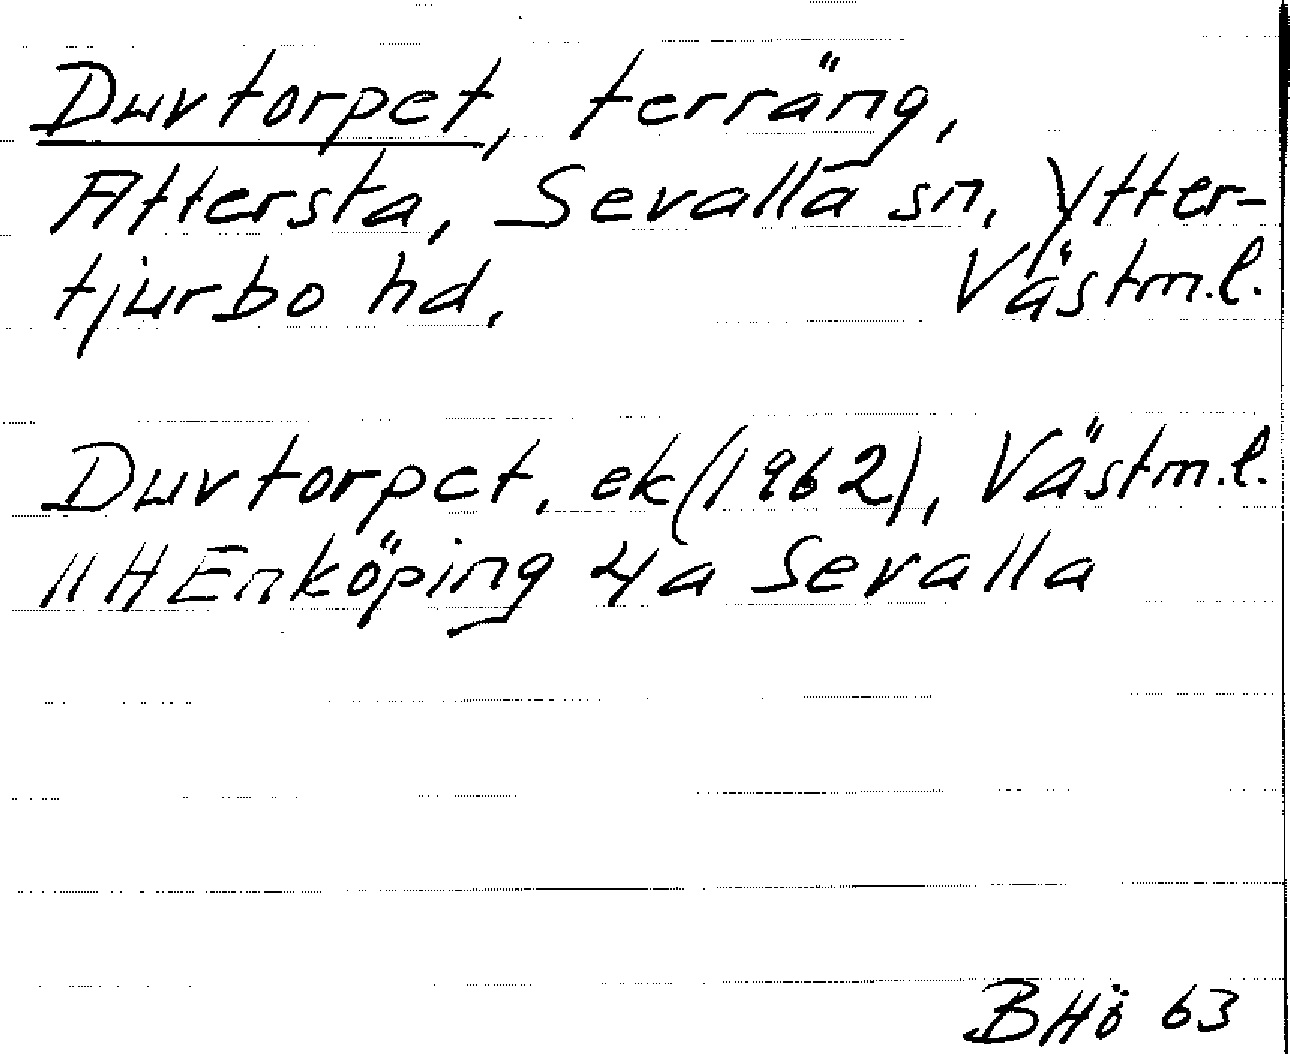 Duvtorpet, terräng,
Attersta, Sevalla sn, Ytter-
tjurbo hd, Västm.l.
Duvtorpet, ek (1962), Västm.l.
11H Enköping 4a Sevalla
BHö 63